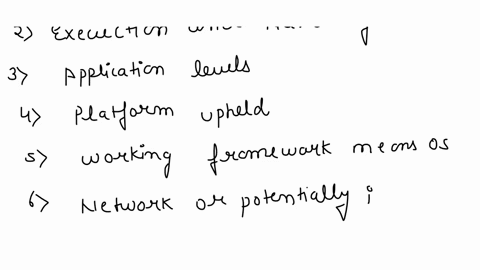 2) Execution
3) Application levels
4) Platform upheld
5) working framework means os
6) Network or potentially i